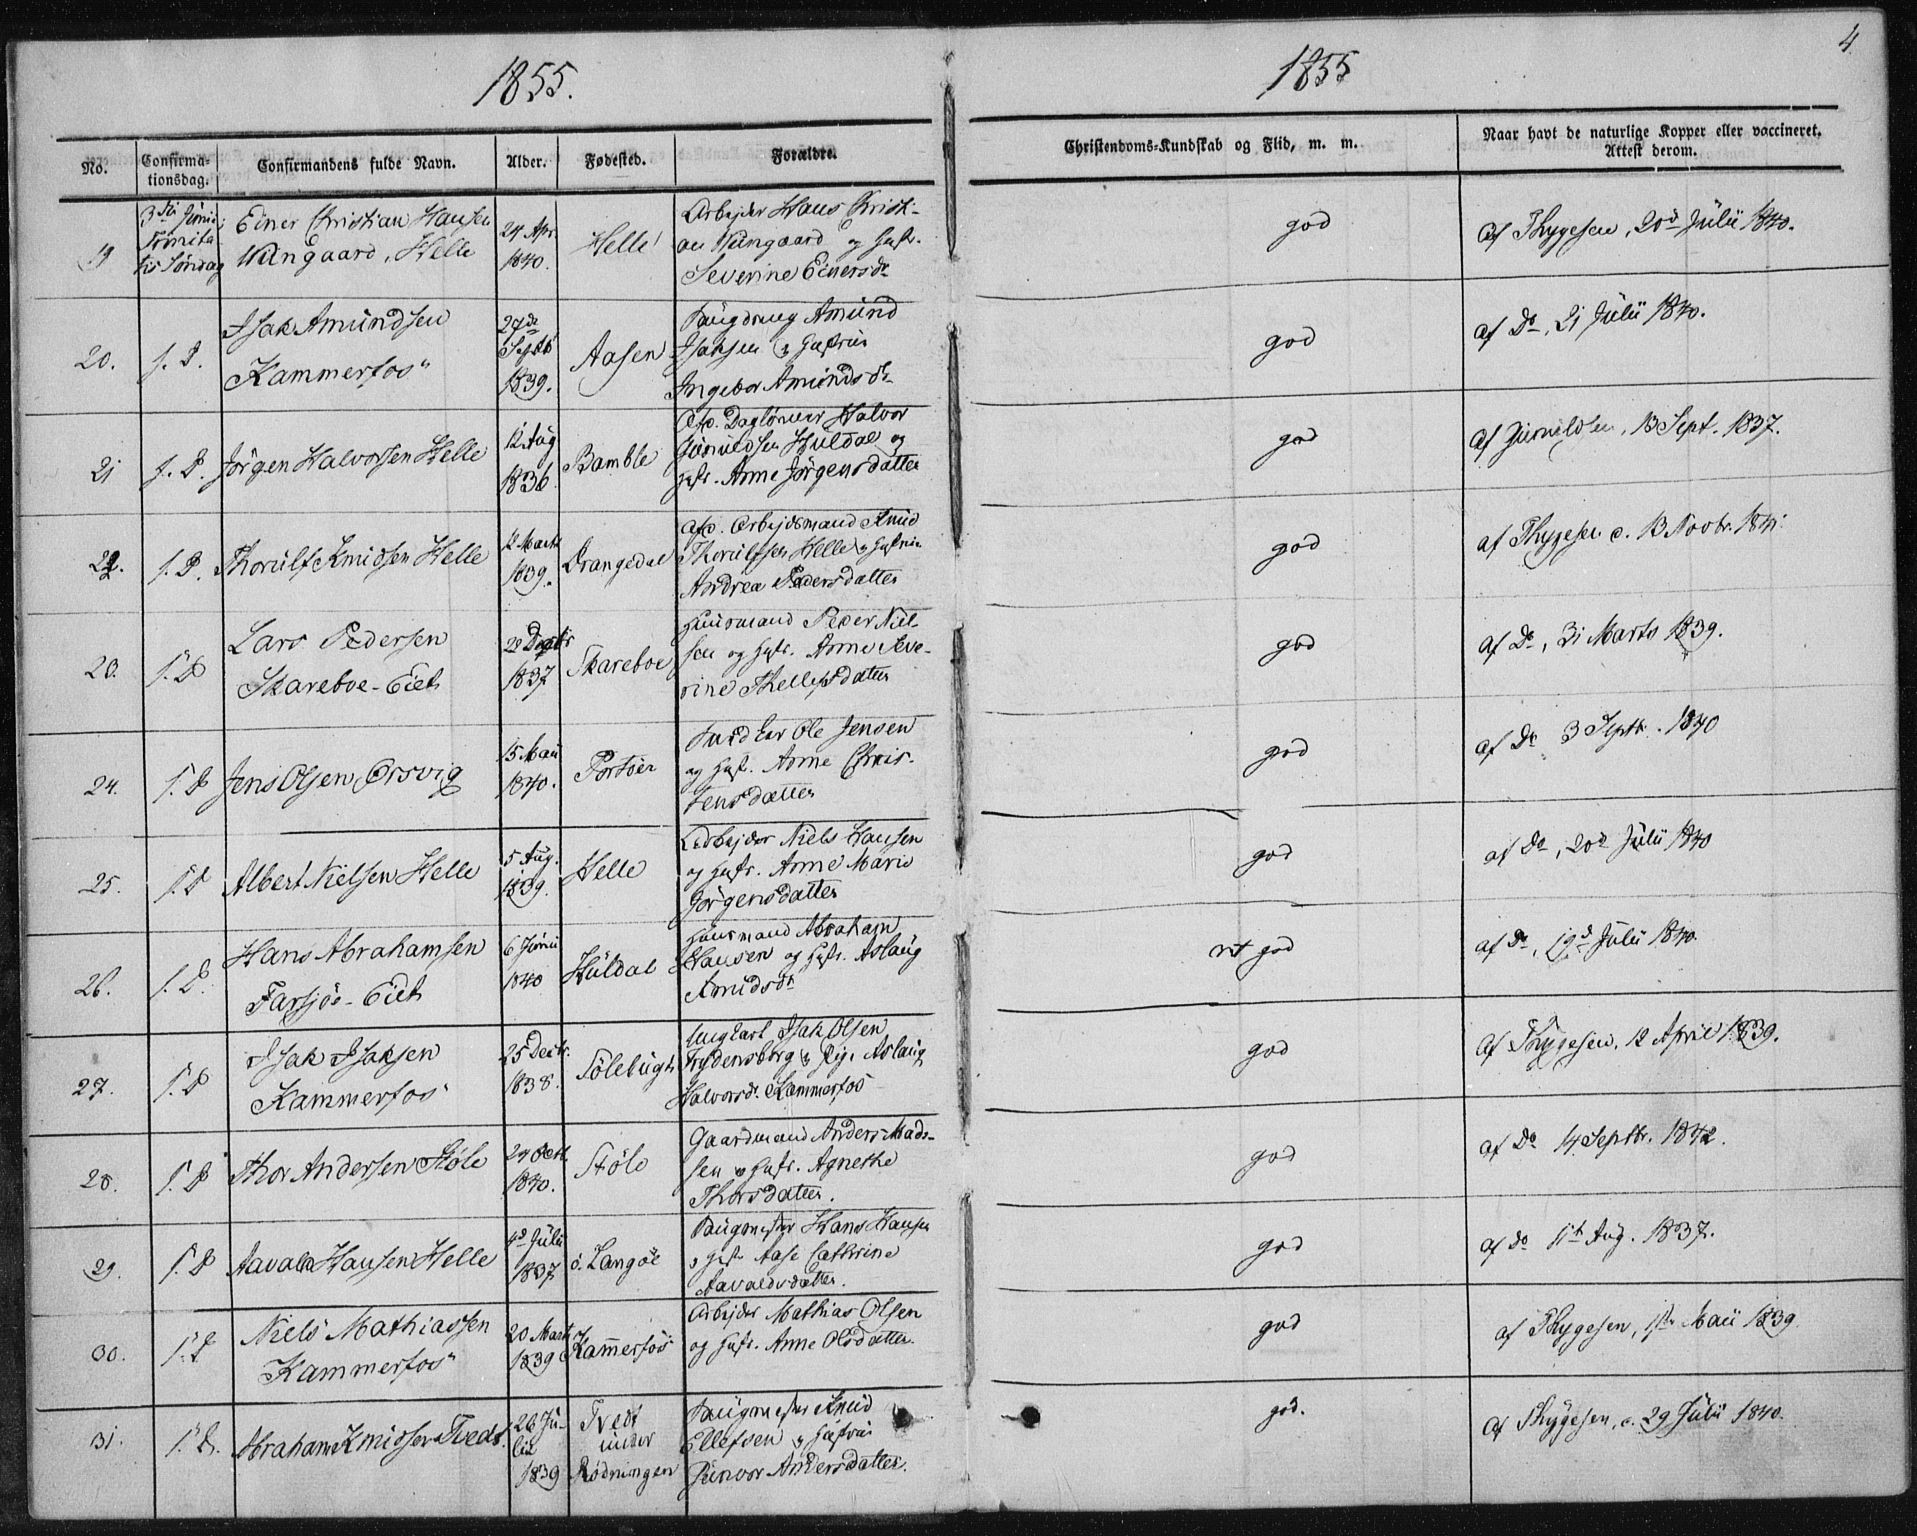 1855.
1855
4
No.
Confirma-
tionsdag.
Confirmandens fulde Navn.
Alder.
Fødested.
Forældre.
Christendoms-Kundskab og Flid, m. m.
Naar havt de naturlige Kopper eller vaccineret.
Attest derom.
19
Trinita-
tis Søndag
Einer Christian Hansen
Wingaard, Helle
24 Apr.
1840.
Helle
Arbejder Hans Christi-
an Wingaard og Hustr.
Severine Einersdr
god
af Thygesen, 20de Julii 1840.
20.
s. D.
Isak Amundsen
Kammerfos
27de
Septb
1839.
Aasen
Amund
Isaksen og Hustrue
Ingebor Amundsdr
god
af Do, 21 Julii 1840.
21
s. D.
Jörgen Halvorsen Helle
12 Aug
1836
Bamble
Afd. Daglönner Halvor
Huldal og
Hustr. Anne Jörgensdatter
god
af Gunnildsen, 13 Sept. 1837.
22.
s. D.
Thorulf Knudsen Helle
12 Marts
1839.
Drangedal
Afd. Arbejdsmand Knud
Thorulfsen Helle og Hustrue
Andrea Pedersdatter
god
af Thygesen d. 13 Novbr. 1841.
23.
s. D
Lars Pedersen
Skareboe-Eiet
28 Decbr
1837
Skareboe
Huusmand Peder Niel-
sen og Hustr. Anne Seve-
rine Thellefsdatter
god
af Do, 31 Marts 1839.
24.
s. D
Jens Olsen Orsvig
15 Maii
1840.
Portöer
Ole Jensen
og Hust. Anne Chris-
tensdatter
god
af Do 3 Septbr. 1840
25.
s. D
Albert Nielsen Helle
5 Aug.
1839.
Helle
Arbejder Niels Hansen
og Hustr. Anne Marie
Jörgensdatter
god
af Do, 20de Julii 1840
26.
s. D.
Hans Abrahamsen
Farsjöe-Eiet
6 Junii
1840
Huldal
Huusmand Abraham
Hansen og Hustr. Aslaug
Knudsdr
god
af Do, 19de Julii 1840.
27.
s. D
Isak Isaksen
Kammerfos
25 Decbr.
1838.
Tölebugt
Ungkarl Isak Olsen
Frydensborg og Pige Aslaug
Halvorsdr. Kammerfos
god
af Thygesen, 12 April 1839.
28.
s. D
Thor Andersen Stöle
24 Octb.
1840.
Stöle
Gaardmand Anders Mads-
sen og Hustr. Agnethe
Thorsdatter.
god
af Do 14 Septbr. 1842.
29.
s. D
Aavald Hansen Helle
4de Julii
1837
Langöe
Hans Hansen
og Hustr Aase Cathrine
Aavaldsdatter.
god
af do 11te Aug. 1837.
30.
s. D
Niels Mathiassen
Kammerfos
20 Marts
1839
Kammerfos
Arbejder Mathias Olsen
og Hustr. Anne Olsdatter
god
af Thygesen, 1ste Maii 1839.
31.
s. D.
Abraham Knudsen Tvedt
26 Ju-
lii
1839
Tvedt
under
Rödningen
Knud
Ellefsen og Hustrue
Gunvor Andersdatter.
god.
af Thygesen, d. 29 Julii 1840.